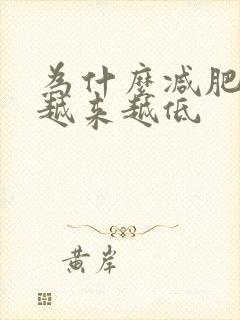 为什麽减肥
越来越低
黄岸